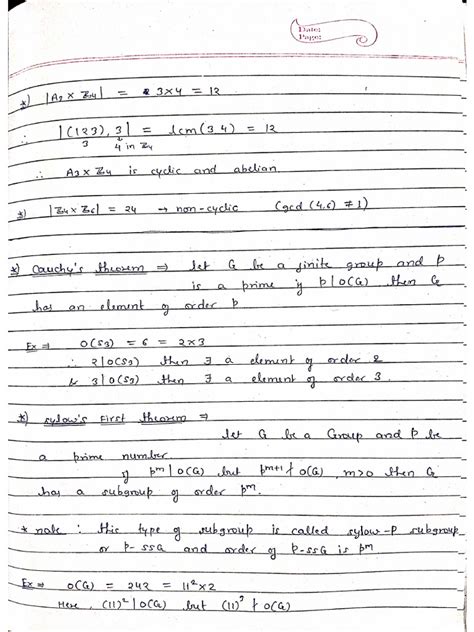 Date:
Page:
*) |A3 × Z4| = 3×4 = 12
∴ |(123), 3| = lcm(3 4) = 12
3 4 in Z4
∴ A3 × Z4 is cyclic and abelian.
*) |Z4 × Z6| = 24 → non-cyclic (gcd (4,6) ≠ 1)
*) Cauchy's theorem ⇒ let G be a finite group and p
is a prime if p|O(G) then G
has an element of order p
Ex ⇒ O(S3) = 6 = 2×3
∴ 2|O(S3) then ∃ a element of order 2
& 3|O(S3) then ∃ a element of order 3.
*) Sylow's First theorem ⇒
let G be a Group and p be
a prime number.
if p^m | O(G) but p^{m+1} ∤ O(G), m>0 then G
has a subgroup of order p^m.
* note : this type of subgroup is called sylow-P subgroup
or p-ssG and order of p-ssG is p^m
Ex ⇒ O(G) = 242 = 11²×2
Here, (11)² | O(G) but (11)³ ∤ O(G)